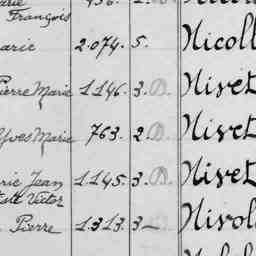 François
arie 2.074. 5. Nicoll
Pierre Marie 1.146. 3. D. Nivet
Yves Marie 763. 2. D. Nivet
rie Jean 1.145. 3. D. Nivet
Victor
Pierre 1.313. 3 Nivol